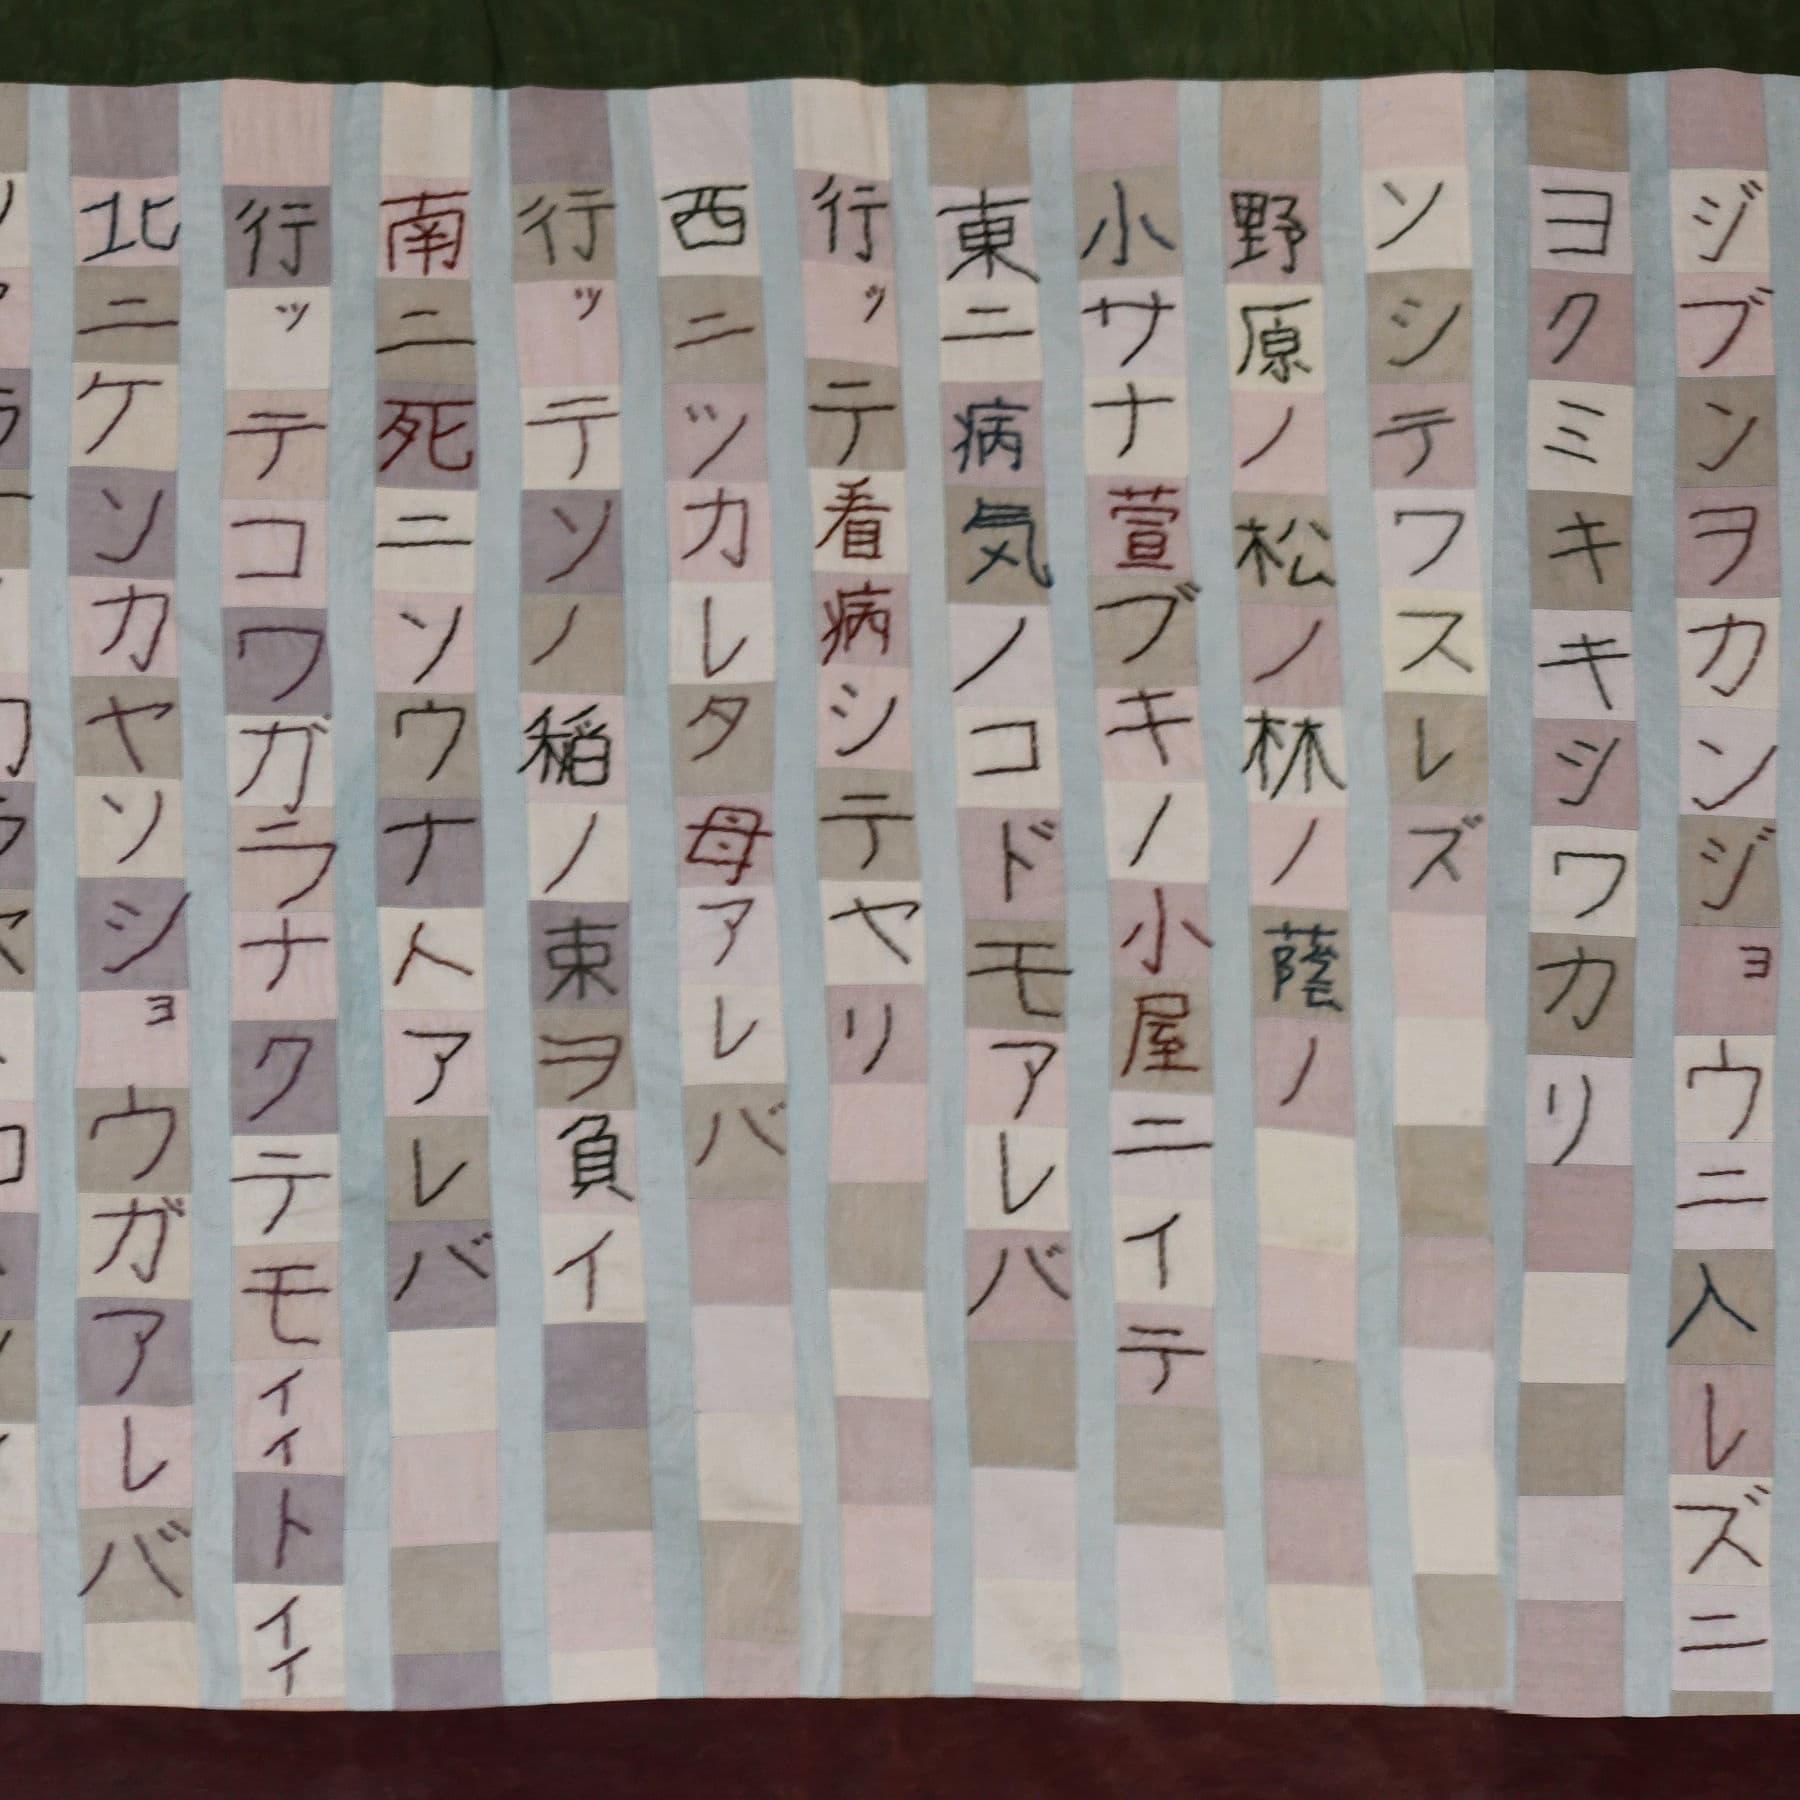 ジブンヲカンジョウニ入レズニ
ヨクミキキシワカリ
ソシテワスレズ
野原ノ松ノ林ノ蔭ノ
小サナ萱ブキノ小屋ニイテ
東ニ病気ノコドモアレバ
行ッテ看病シテヤリ
西ニツカレタ母アレバ
行ッテソノ稲ノ束ヲ負イ
南ニ死ニソウナ人アレバ
行ッテコワガラナクテモイイトイイ
北ニケンカヤソショウガアレバ